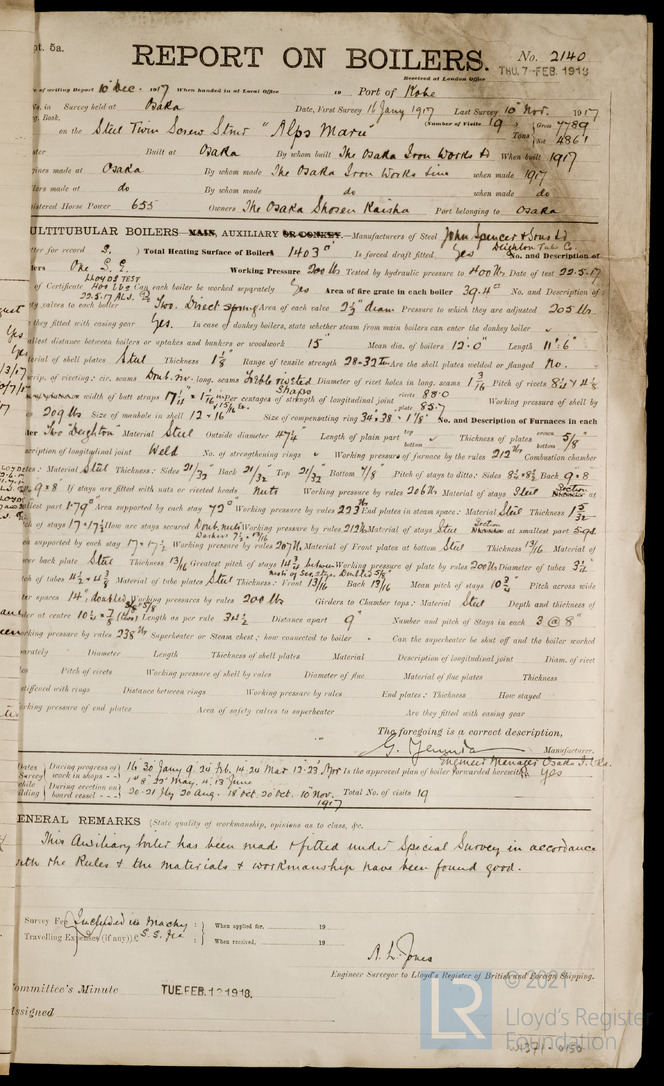 pt. 5a.
REPORT ON BOILERS.
No. 2140
Received at London Office THU. 7-FEB. 1918
of writing Report 10 Dec. 1917 When handed in at Local Office 19 Port of Kobe
in Survey held at Osaka Date, First Survey 16 Jany 1917 Last Survey 10 Nov. 1917
Book. (Number of Visits 19 Gross 7789
on the Steel Twin Screw Stmr "Alps Maru" Tons Net 4861
Built at Osaka By whom built The Osaka Iron Works Ld When built 1917
ines made at Osaka By whom made The Osaka Iron Works Lim when made 1917
lers made at do By whom made do when made do
istered Horse Power 655 Owners The Osaka Shosen Kaisha Port belonging to Osaka
ULTITUBULAR BOILERS MAIN, AUXILIARY OR DONKEY.—Manufacturers of Steel John Spencer & Sons Ld
Deighton Tube Co.
tter for record S. Total Heating Surface of Boilers 1403 Is forced draft fitted Yes No. and Description of
lers One S. E. Working Pressure 200 lb Tested by hydraulic pressure to 400 lb Date of test 22.5.17
LLOYDS TEST
of Certificate 400 lbs Can each boiler be worked separately Yes Area of fire grate in each boiler 39.4 No. and Description of
22.5.17
ty valves to each boiler Two. Direct spring Area of each valve 2½" diam Pressure to which they are adjusted 205 lb.
they fitted with easing gear Yes. In case of donkey boilers, state whether steam from main boilers can enter the donkey boiler
allest distance between boilers or uptakes and bunkers or woodwork 15" Mean dia. of boilers 12'-0" Length 11'-6"
terial of shell plates Steel Thickness 1⅛ Range of tensile strength 28-32 Are the shell plates welded or flanged No.
crip. of riveting: cir. seams Doub. riv. long. seams Treble riveted Diameter of rivet holes in long. seams 1 3/16 Pitch of rivets
width of butt straps Per centages of strength of longitudinal joint rivets 88.0 Working pressure of shell by
plate 85.7
209 lb Size of manhole in shell 12 × 16 Size of compensating ring 34 × 38 × 1⅛" No. and Description of Furnaces in each
ler Two "Deighton" Material Steel Outside diameter 47¼ Length of plain part top bottom Thickness of plates crown bottom 5/8"
scription of longitudinal joint Weld No. of strengthening rings Working pressure of furnace by the rules 212 lb Combustion chamber
tes: Material Steel Thickness: Sides 21/32 Back 21/32 Top 21/32 Bottom 7/8 Pitch of stays to ditto: Sides Back 9 × 8
9 × 8 If stays are fitted with nuts or riveted heads nuts Working pressure by rules 206 lb Material of stays Steel Section at
llest part 1.79 Area supported by each stay 72 Working pressure by rules 223 lb End plates in steam space: Material Steel Thickness 1 5/32
ch of stays 17 × 17½ How are stays secured Doub. nuts Working pressure by rules 212 lb Material of stays Steel Section at smallest part
ea supported by each stay 17 × 17½ Working pressure by rules 207 lb Material of Front plates at bottom Steel Thickness 13/16 Material of
wer back plate Steel Thickness 13/16 Greatest pitch of stays Working pressure of plate by rules 200 lb Diameter of tubes 3¼"
tch of tubes 4½ × 4⅜ Material of tube plates Steel Thickness: Front 13/16 Back 13/16 Mean pitch of stays 10¾" Pitch across wide
ter spaces 14", doubled Working pressures by rules 200 lb Girders to Chamber tops: Material Steel Depth and thickness of
der at centre Length as per rule Distance apart 9" Number and pitch of Stays in each 3 @ 8"
orking pressure by rules 238 lb Superheater or Steam chest; how connected to boiler Can the superheater be shut off and the boiler worked
parately Diameter Length Thickness of shell plates Material Description of longitudinal joint Diam. of rivet
les Pitch of rivets Working pressure of shell by rules Diameter of flue Material of flue plates Thickness
stiffened with rings Distance between rings Working pressure by rules End plates: Thickness How stayed
orking pressure of end plates Area of safety valves to superheater Are they fitted with easing gear
The foregoing is a correct description,
Manufacturer.
Engineer Manager Osaka I. Wks.
Dates During progress of work in shops - - 16 30 Jany 9. 24 Feb. 14-24 Mar 12-23 Apr Is the approved plan of boiler forwarded herewith Yes
Survey 1st 8. 22 May. 4. 13 June
while During erection on
ilding board vessel - - - 20-21 Jly 20 Aug. 18 Oct. 20 Oct. 10 Nov. 1917 Total No. of visits 19
ENERAL REMARKS (State quality of workmanship, opinions as to class, &c.
This Auxiliary boiler has been made & fitted under Special Survey in accordance
with the Rules & the materials & workmanship have been found good.
Survey Fee Included in Machy : When applied for, 19
Travelling Expenses (if any) £ S.S. Fee : When received, 19
A. L. Jones
Engineer Surveyor to Lloyd's Register of British and Foreign Shipping.
Committee's Minute TUE. FEB. 12 1918.
Assigned
© 2021
LR
Lloyd's Register
Foundation